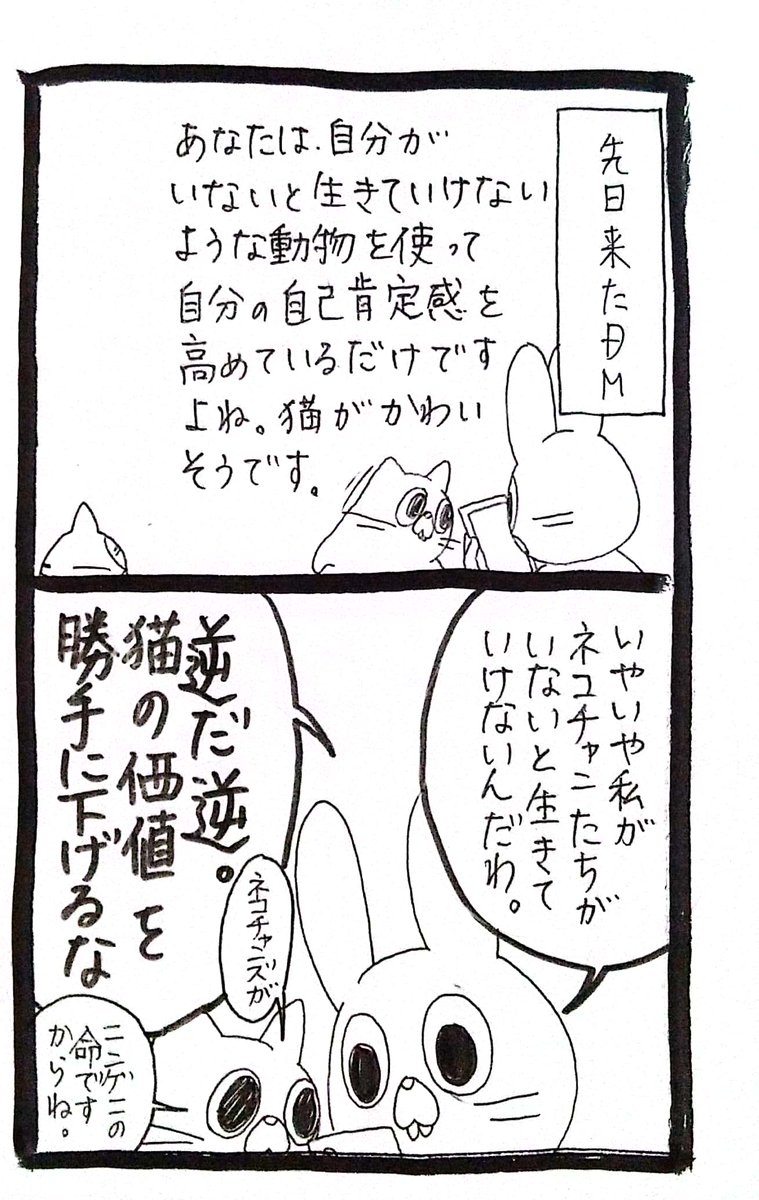 先日来たDM
あなたは、自分が
いないと生きていけない
ような動物を使って
自分の自己肯定感を
高めているだけです
よね。猫がかわい
そうです。
いやいや私が
ネコチャンたちが
いないと生きて
いけないんだわ。
逆だ逆。
猫の価値を
勝手に下げるな
ネコチャンズが
ニンゲンの
命です
からね。